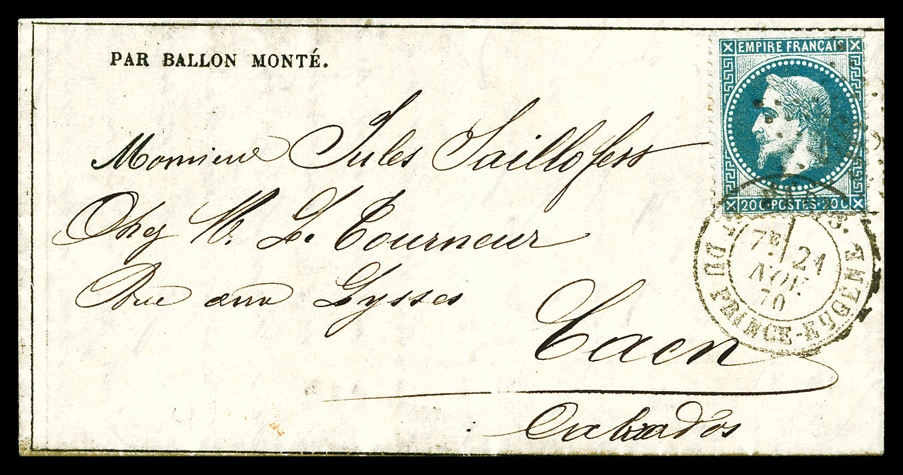 PAR BALLON MONTÉ.
EMPIRE FRANÇAIS
20 C POSTES 20 C
Monsieur Jules
Chez M. Le Tourneur
Rue aux Lysses
Caen
Calvados
PARIS
7E 21
NOV.
70
BT DU PRINCE-EUGENE